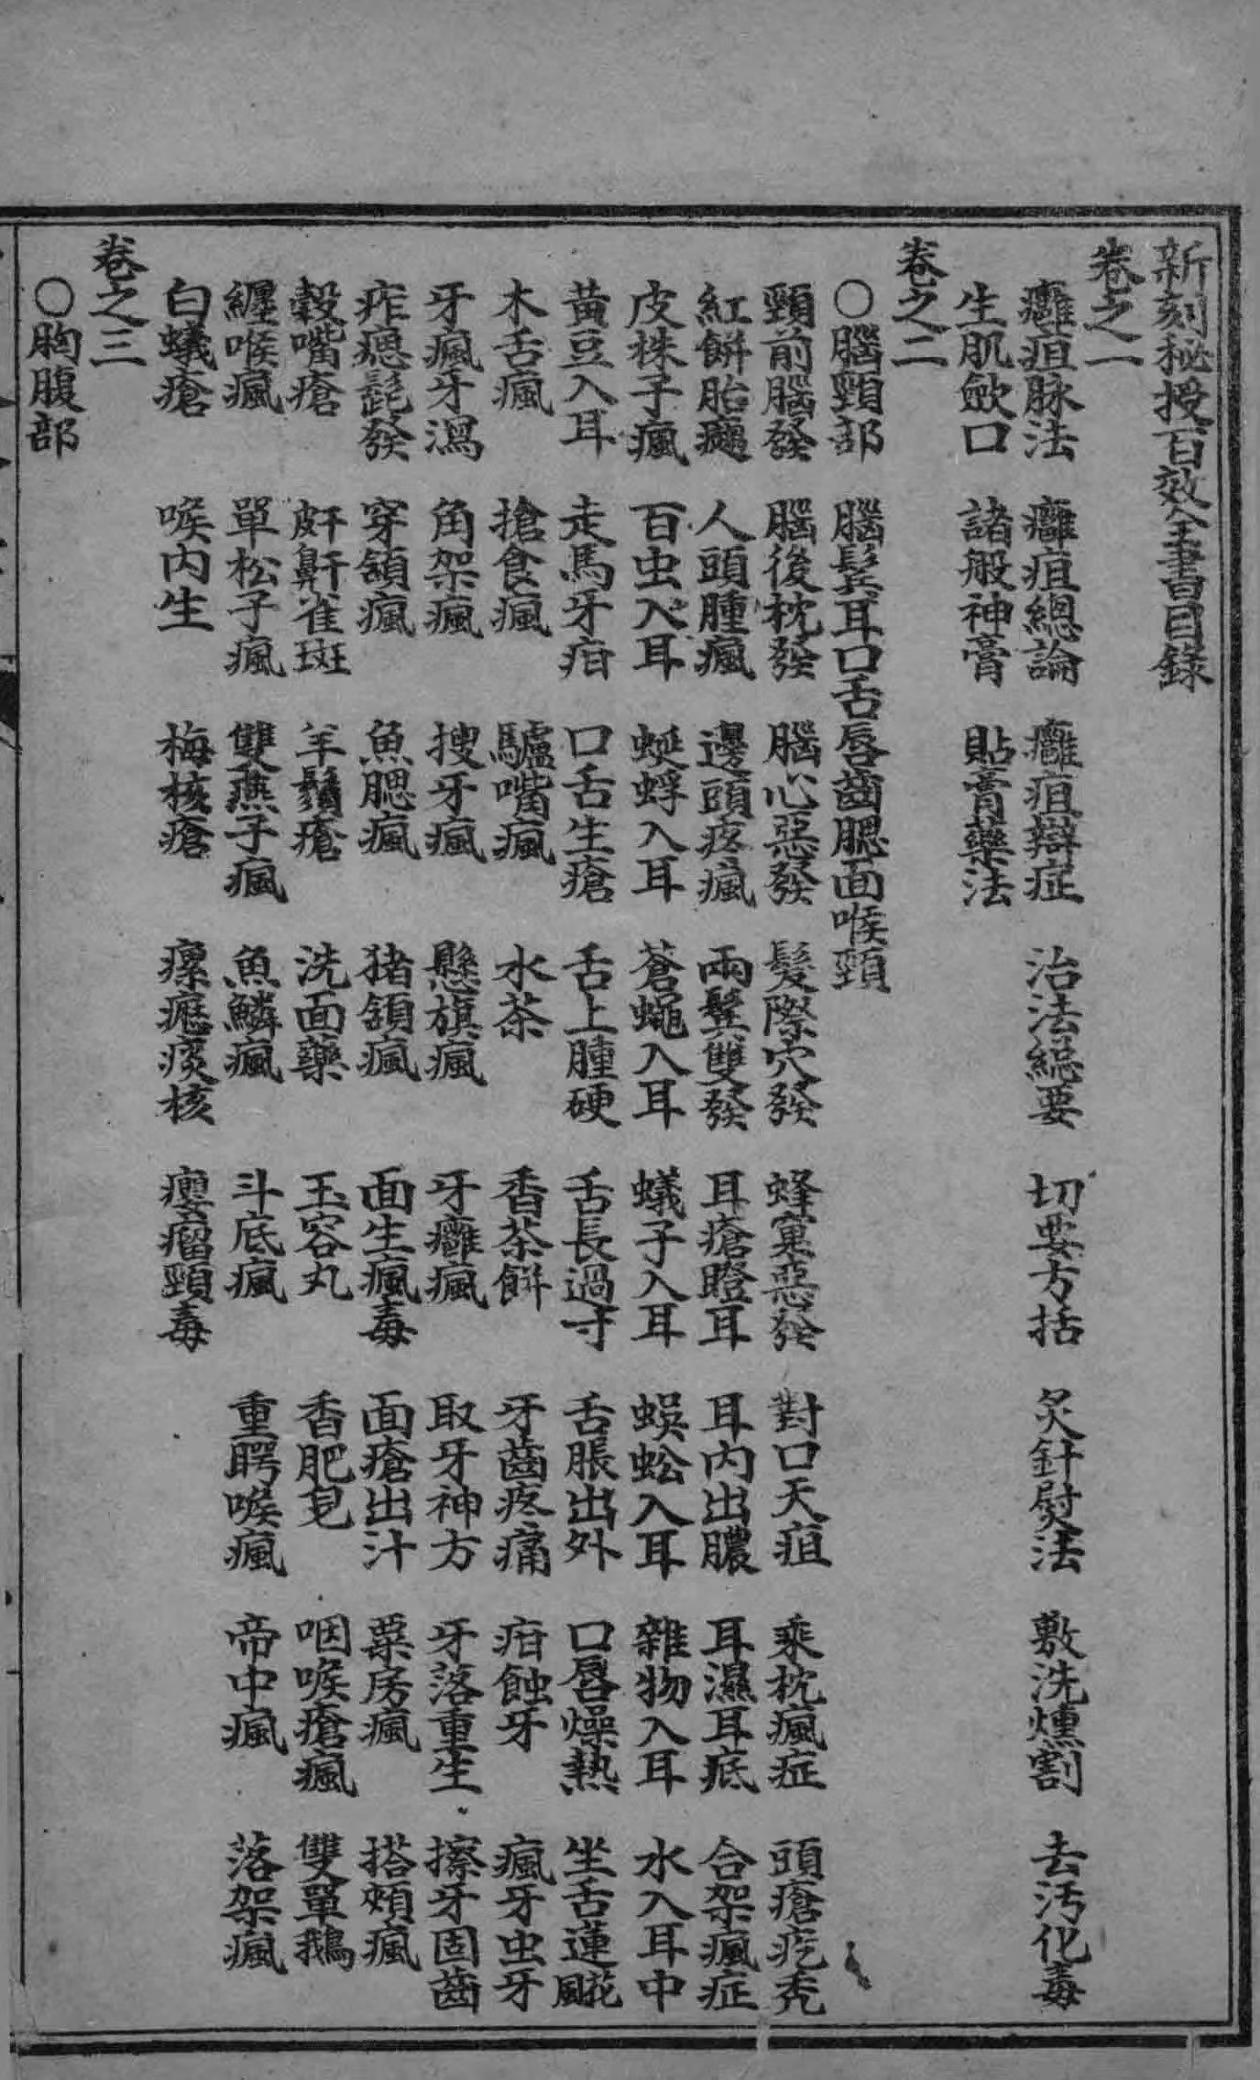 新刻秘授百效全書目錄
卷之一
癰疽脉法 癰疽總論 癰疽辯症 治法總要 切要方括 炙針熨法 敷洗燻割 去汚化毒
生肌歛口 諸般神膏 貼膏藥法
卷之二
○腦頸部 腦鬂耳口舌唇齒腮面喉頸
頸前腦發 腦後枕發 腦心惡發 髮際穴發 蜂窠惡發 對口天疽 乘枕瘋症 頭瘡疙禿
紅餅胎癧 人頭腫瘋 邊頭疼瘋 兩鬂雙發 耳瘡瞪耳 耳内出膿 耳濕耳底 合架瘋症
皮株子瘋 百虫入耳 蜒蜉入耳 蒼蠅入耳 蟻子入耳 蜈蚣入耳 雜物入耳 水入耳中
黃豆入耳 走馬牙疳 口舌生瘡 舌上腫硬 舌長過寸 舌脹出外 口唇燥熱 坐舌蓮花瘋
木舌瘋 搶食瘋 驢嘴瘋 水茶 香茶餅 牙齒疼痛 疳蝕牙 瘋牙虫牙
牙瘋牙瀉 角架瘋 搜牙瘋 懸旗瘋 牙癰瘋 取牙神方 牙落重生 擦牙固齒
痄腮髭發 穿頷瘋 魚腮瘋 猪頷瘋 面生瘋毒 面瘡出汁 粟房瘋 搭頰瘋
穀嘴瘡 皯鼾雀斑 羊鬚瘡 洗面藥 玉容丸 香肥皂 咽喉瘡瘋 雙單鵝
纏喉瘋 單松子瘋 雙燕子瘋 魚鱗瘋 斗底瘋 重腭喉瘋 帝中瘋 落架瘋
白蟻瘡 喉内生 梅核瘡 瘰癧痰核 癭瘤頸毒
卷之三
○胸腹部